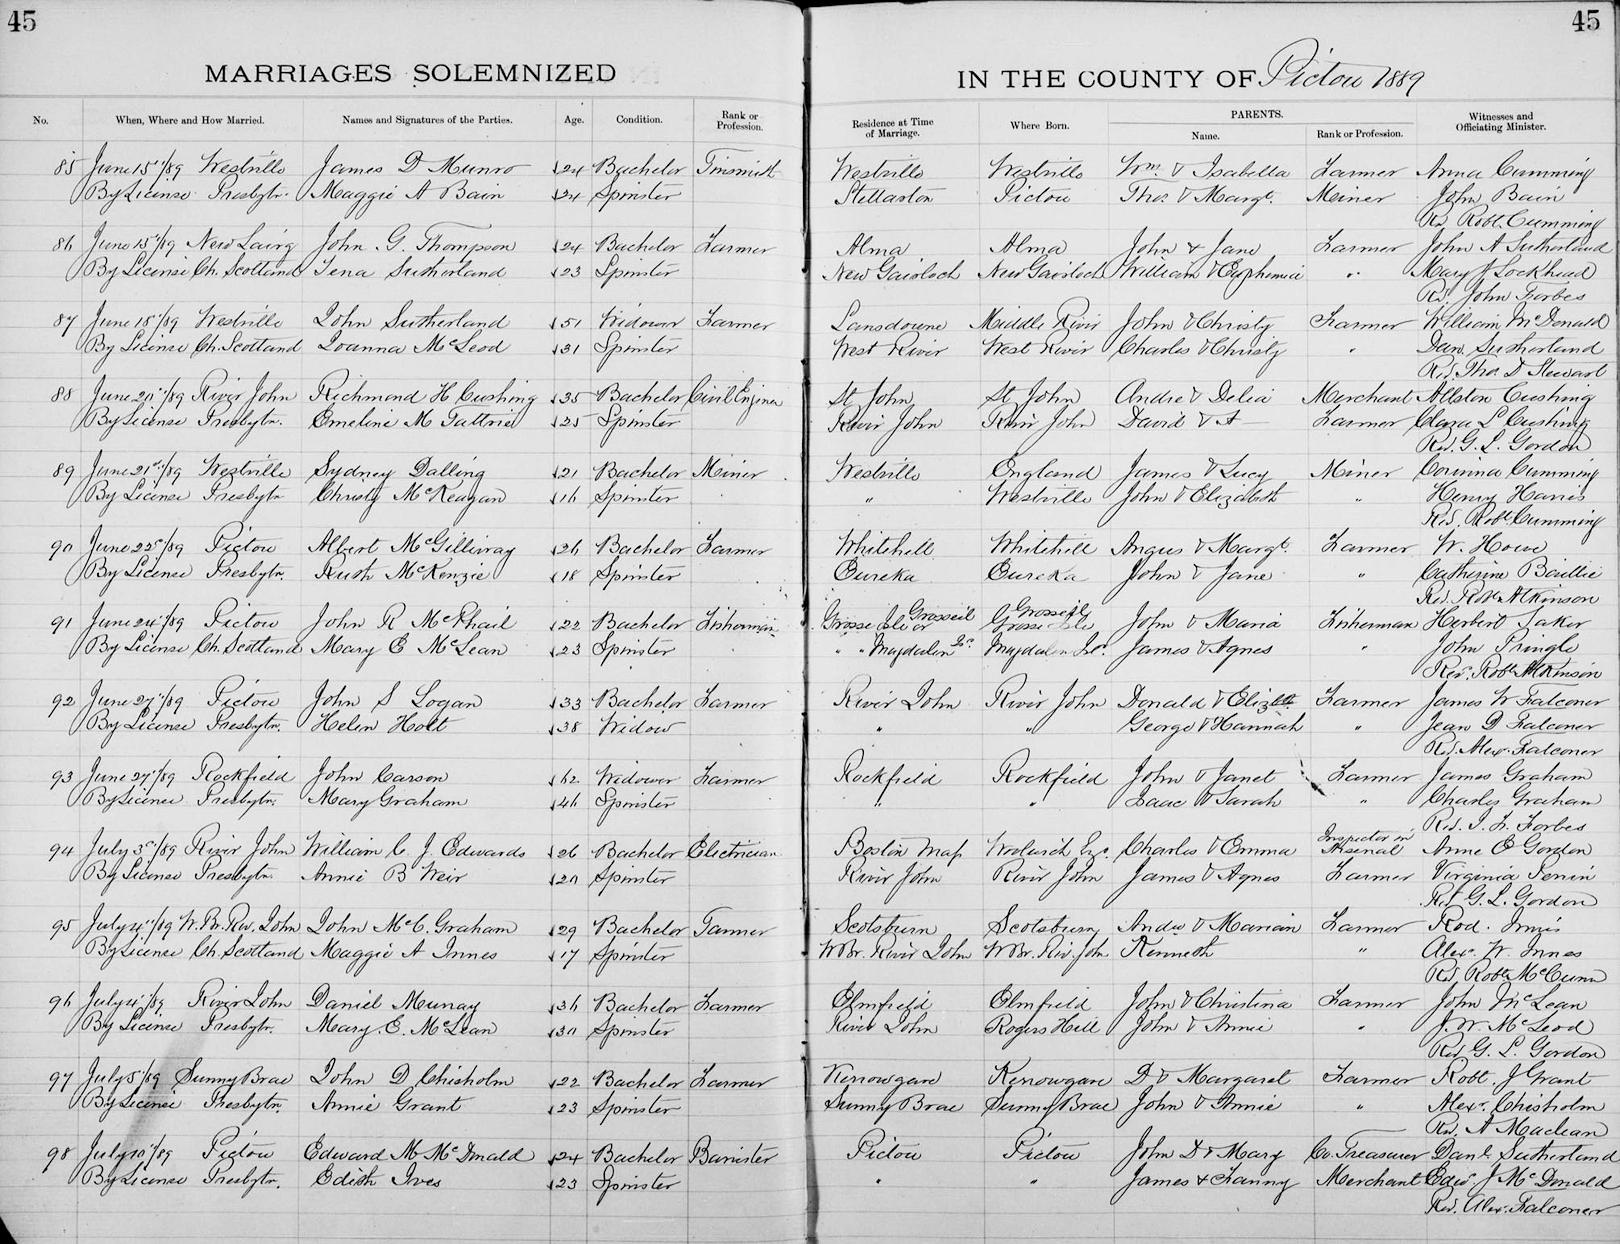 45
45
MARRIAGES SOLEMNIZED
IN THE COUNTY OF Pictou 1889
No. When, Where and How Married. Names and Signatures of the Parties. Age. Condition. Rank or Profession. Residence at Time of Marriage. Where Born. PARENTS. Name. Rank or Profession. Witnesses and Officiating Minister.
85 June 15"/89 Westville James D Munro 24 Bachelor Tinsmith Westville Westville Wm. & Isabella Farmer Anna Cumming
By License Presbytn. Maggie A Bain 24 Spinster Stellarton Pictou Thos. & Margt. Miner John Bain
Rev. Robt. Cumming
86 June 18"/89 New Lairg John G. Thompson 24 Bachelor Farmer Alma Alma John & Jane Farmer John A Sutherland
By License Ch. Scotland Tena Sutherland 23 Spinster New Gairloch New Gairloch William & Euphemia " Mary J Lockhead
Rev. John Forbes
87 June 18"/89 Westville John Sutherland 51 Widower Farmer Lansdowne Middle River John & Christy Farmer William McDonald
By License Ch. Scotland Joanna McLeod 31 Spinster West River West River Charles & Christy " Dan. Sutherland
Rev. Thos. D Stewart
88 June 20"/89 River John Richmond H Cushing 35 Bachelor Civil Enginer St John St John Andre & Delia Merchant Allston Cushing
By License Presbytn. Emeline M Tattrie 25 Spinster River John River John David & A— Farmer Clara L Cushing
Rev. G. L. Gordon
89 June 21st/89 Westville Sydney Dalling 21 Bachelor Miner Westville England James & Lucy Miner Corinna Cumming
By License Presbytn Christy McKeagan 16 Spinster " Westville John & Elizabeth " Henry Harris
Rev. Robt. Cumming
90 June 22d/89 Pictou Albert McGillivray 26 Bachelor Farmer Whitehill Whitehill Angus & Margt. Farmer W. Howe
By License Presbytn. Ruth McKenzie 18 Spinster Eureka Eureka John & Jane " Catherine Baillie
Rev. Robt Atkinson
91 June 24"/89 Pictou John R McPhail 22 Bachelor Fisherman Grosse Isle or Grosseil Grosseil Grosse Isle John & Maria Fisherman Herbert Taker
By License Ch. Scotland Mary E McLean 23 Spinster " " Magdalen Is. Magdalen Is. James & Agnes " John Pringle
Rev. Robt Atkinson
92 June 27"/89 Pictou John S Logan 33 Bachelor Farmer River John River John Donald & Elizth Farmer James W Falconer
By License Presbytn. Helen Holt 38 Widow " " George & Hannah " Jean D Falconer
Rev. Alex. Falconer
93 June 27"/89 Rockfield John Carson 62 Widower Farmer Rockfield Rockfield John & Janet Farmer James Graham
By License Presbytn. Mary Graham 46 Spinster " " Isaac & Sarah " Charles Graham
Rev. J. F. Forbes
94 July 3d/89 River John William C. J. Edwards 26 Bachelor Electrician Boston Mass Woolwich Eng. Charles & Emma Inspector in Arsenal Anne E Gordon
By License Presbytn. Annie B Weir 20 Spinster River John River John James & Agnes Farmer Virginia
Rev G. L. Gordon
95 July 4"/89 W. Br. Riv. John John McC. Graham 29 Bachelor Tanner Scotsburn Scotsburn Andw & Marian Farmer Rod. Innis
By License Ch. Scotland Maggie A Innes 17 Spinster W Br. River John W Br. Riv. John Kenneth " Alex. W. Innes
Rev Robt McCunn
96 July 4"/89 River John Daniel Murray 36 Bachelor Farmer Elmfield Elmfield John & Christina Farmer John McLean
By License Presbytn. Mary E. McLean 30 Spinster River John Rogers Hill John & Annie " J. W. McLeod
Rev G. L. Gordon
97 July 5"/89 Sunny Brae John D Chisholm 22 Bachelor Farmer Kerrowgare Kerrowgare D & Margaret Farmer Robt. J Grant
By License Presbytn Annie Grant 23 Spinster Sunny Brae Sunny Brae John & Annie " Alexr. Chisholm
Rev. A Maclean
98 July 10"/89 Pictou Edward M McDonald 24 Bachelor Barrister Pictou Pictou John D & Mary Co. Treasurer Danl. Sutherland
By License Presbytn. Edith Ives 23 Spinster " " James & Fanny Merchant Edw. J McDonald
Rev. Alex. Falconer